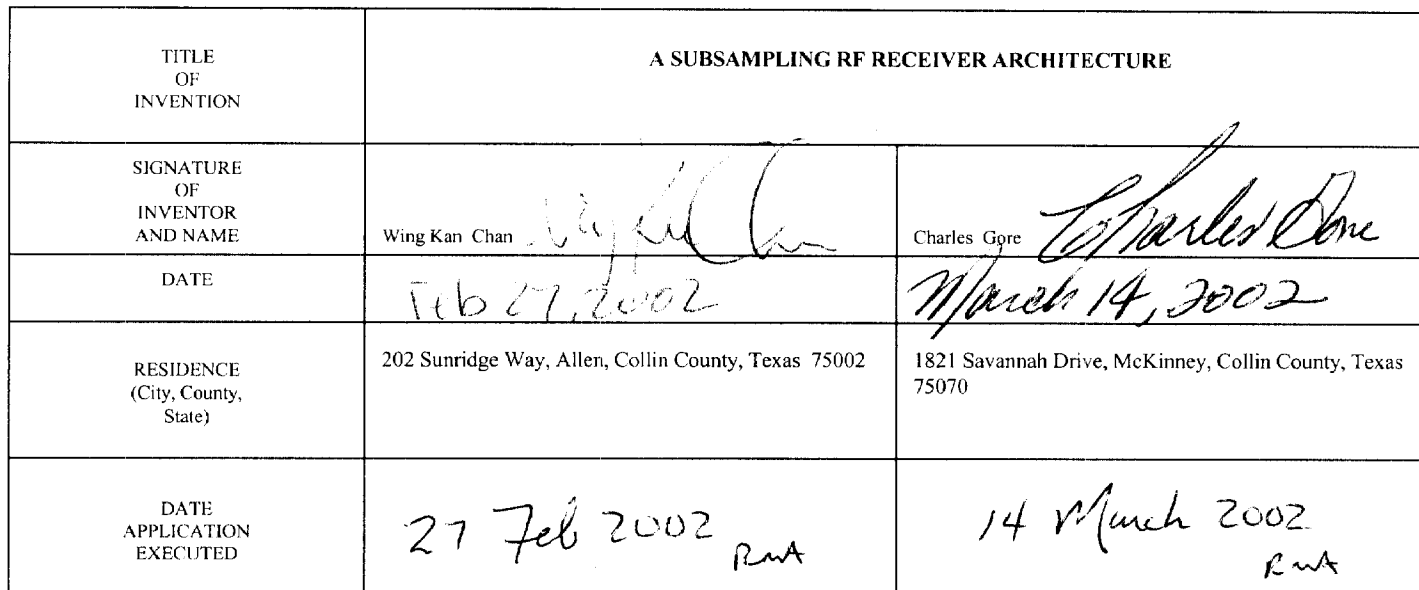 TITLE
OF
INVENTION
A SUBSAMPLING RF RECEIVER ARCHITECTURE
SIGNATURE
OF
INVENTOR
AND NAME
Wing Kan Chan
Charles Gore Charles Gore
DATE
Feb 27, 2002
March 14, 2002
RESIDENCE
(City, County,
State)
202 Sunridge Way, Allen, Collin County, Texas 75002
1821 Savannah Drive, McKinney, Collin County, Texas
75070
DATE
APPLICATION
EXECUTED
27 Feb 2002
14 March 2002